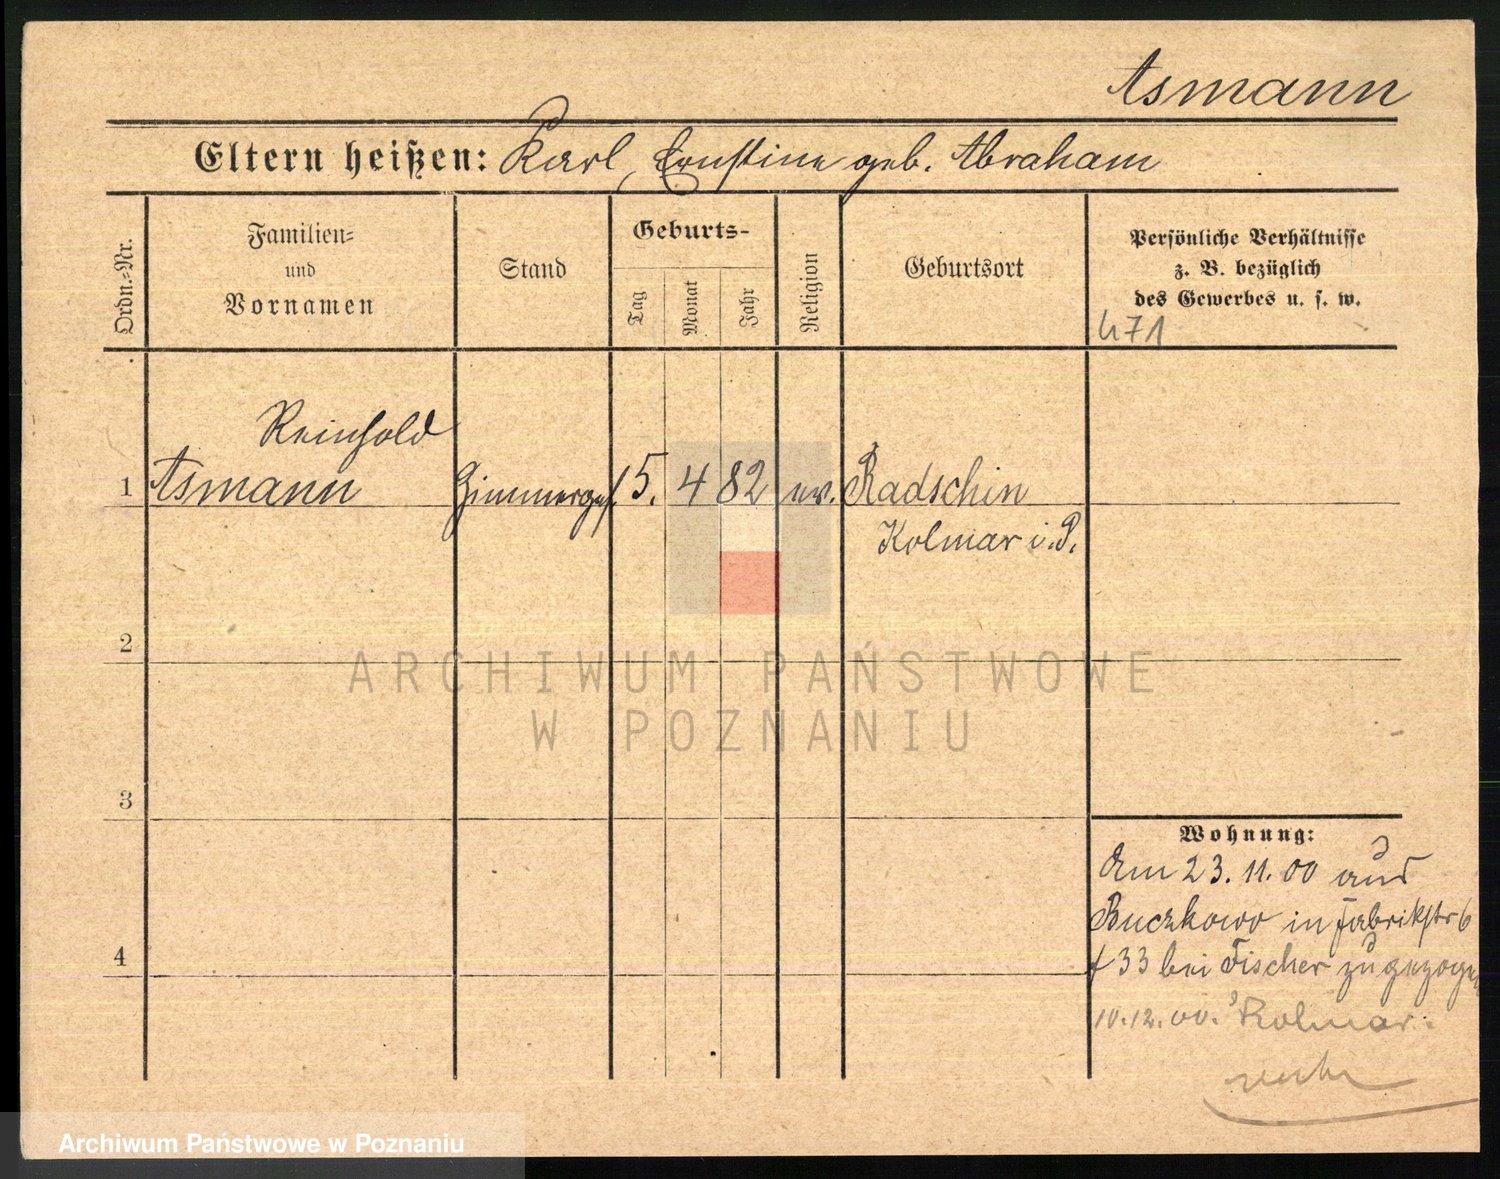 Asmann
Eltern heißen: Karl, Ernstine geb. Abraham
Ordn.=Nr.
Familien=
und
Vornamen
Stand
Geburts-
Tag
Monat
Jahr
Religion
Geburtsort
Persönliche Verhältnisse
z. B. bezüglich
des Gewerbes u. s. w.
471
Reinhold
1 Asmann Zimmerges. 5. 4 82 ev. Radschin
Kolmar i. P.
2
ARCHIWUM PAŃSTWOWE
W POZNANIU
3
Wohnung:
Am 23. 11. 00 aus
Buczkowo in Fabrikstr 6
33 bei Fischer zugezogen
4
10.12.00. Kolmar.
Archiwum Państwowe w Poznaniu